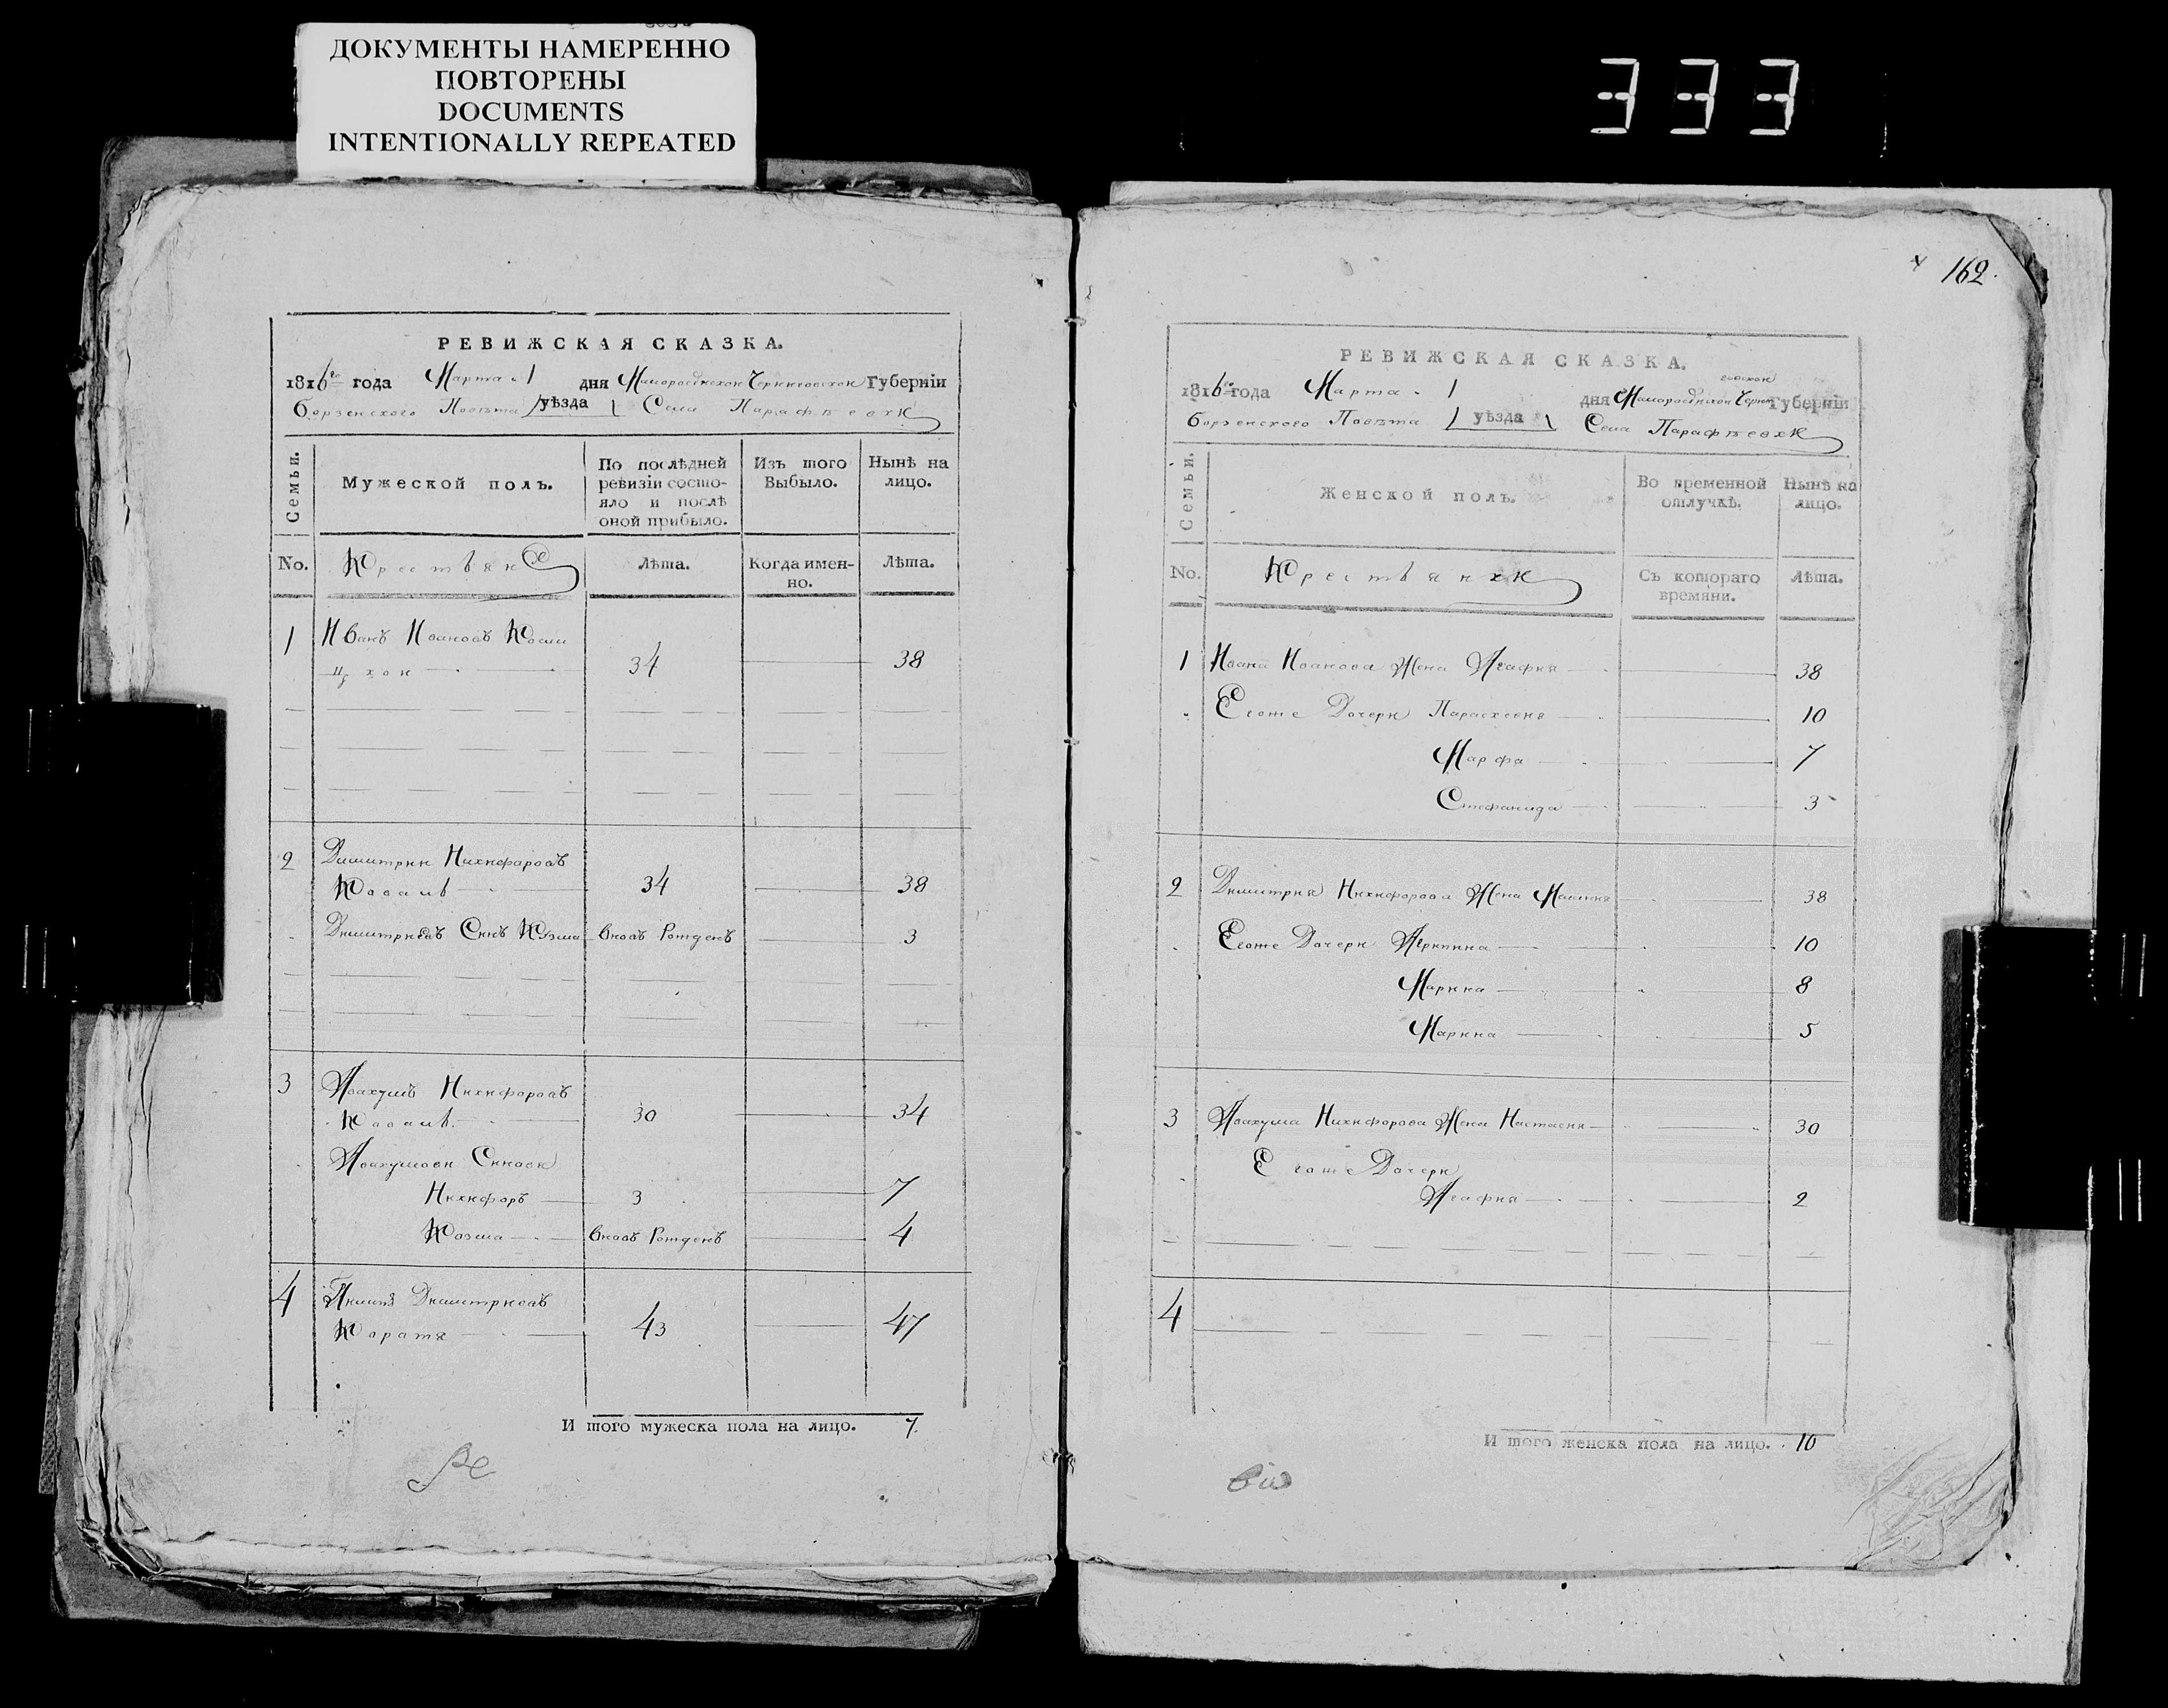 ДОКУМЕНТЫ НАМЕРЕННО
ПОВТОРЕНЫ
DOCUMENTS
INTENTIONALLY REPEATED
333
РЕВИЖСКАЯ СКАЗКА.
1816го года Марта 1 дня Малоросийской Черниговской Губерніи
Борзенского Повѣта / уѣзда \ Села Парафѣевки
Семьи.
Мужеской полъ.
По послѣдней ревизіи состояло и послѣ оной прибыло.
Изъ того Выбыло.
Нынѣ на лицо.
No.
Крестьяне
Лѣта.
Когда именно.
Лѣта.
1 Иванъ Ивановъ Коли
цкой 34 38
2 Димитрий Никифоровъ
Коваль 34 38
Димитриевъ Синъ Козма вновь Рожденъ 3
3 Авакумъ Никифоровъ
Коваль 30 34
Авакумови Синови
Никифоръ 3 7
Козма вновь Рожденъ 4
4 Димитриевъ
Коротя 43 47
И того мужеска пола на лицо. 7
162.
РЕВИЖСКАЯ СКАЗКА.
1816го года Марта 1 дня Малоросийской Черниговской Губерніи
Борзенского Повѣта / уѣзда \ Села Парафѣевки
Семьи.
Женской полъ.
Во временной отлучкѣ.
Нынѣ на лицо.
No.
Крестьянки
Съ котораго времяни.
Лѣта.
1 Ивана Иванова Жена Агафия 38
Егоже Дочери Параскевия 10
Марфа 7
Стефанида 3
2 Димитрия Никифорова Жена 38
Егоже Дочери Агрипина 10
Марина 8
Марина 5
3 Авакума Никифорова Жена Настасия 30
Егоже Дочери
Агафия 2
4
И того женска пола на лицо. 10